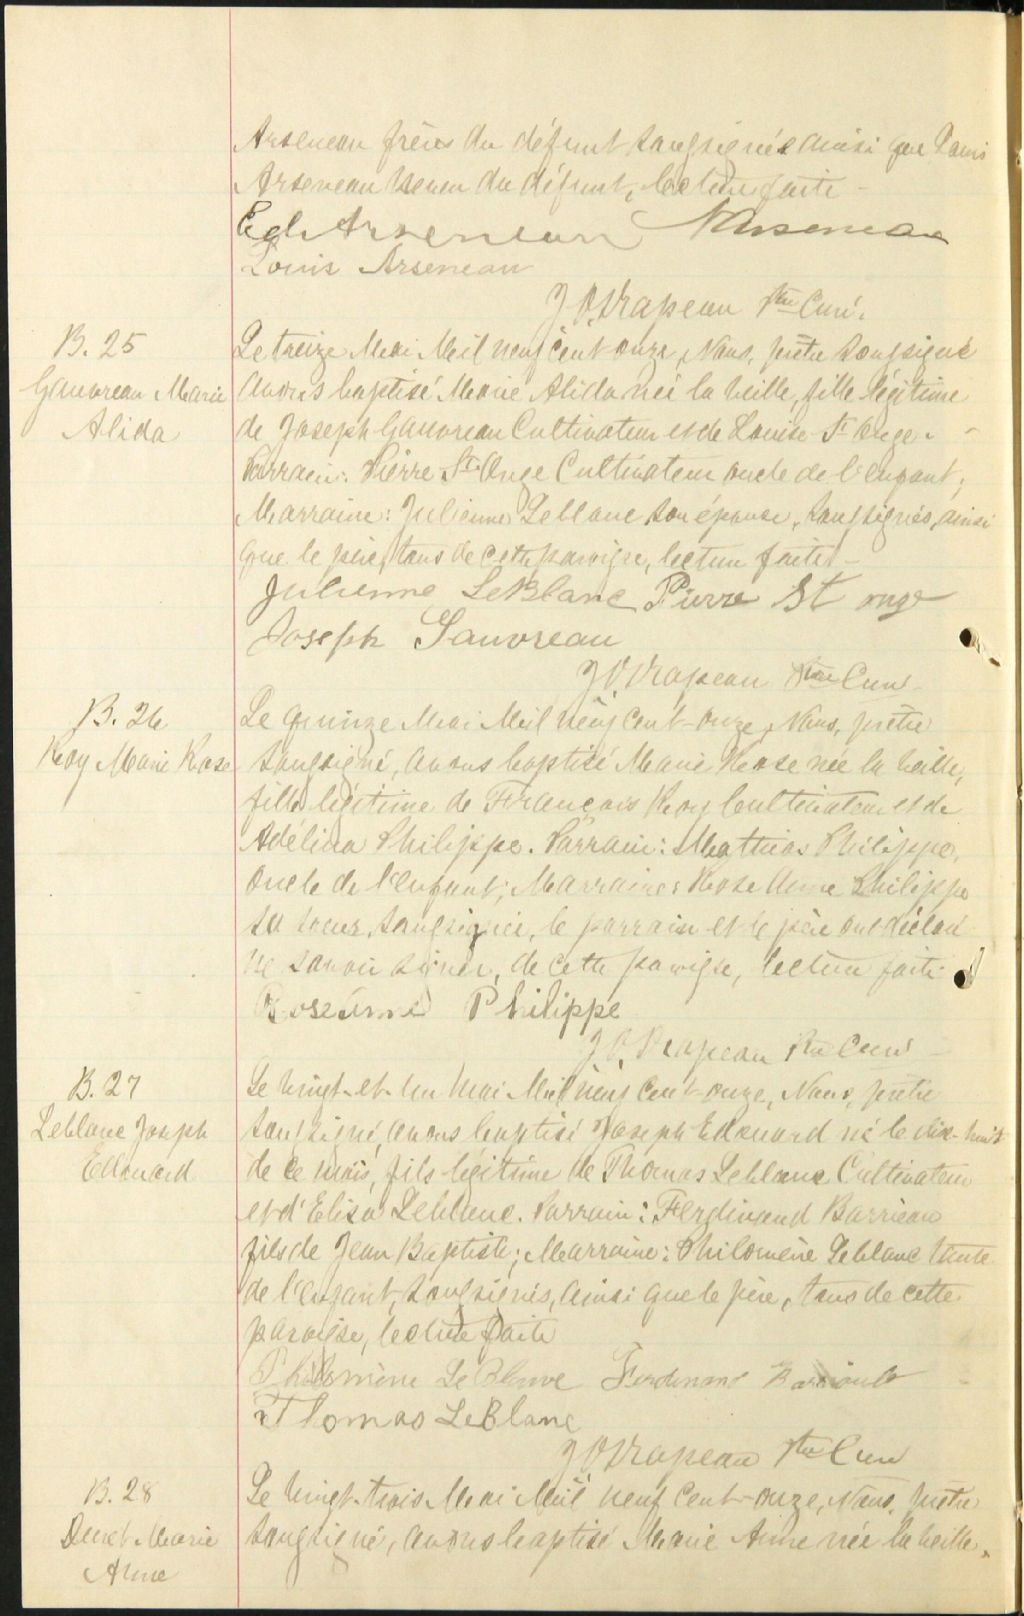 Arseneau frères du défunt soussignés ainsi que Louis
Arseneau neveu du défunt, lecture faite -
Ed Arseneau N Arseneau
Louis Arseneau
J.O. Drapeau Ptre Curé.
B. 25
Gauvreau Marie
Alida
Le treize Mai Mil neuf cent onze, Nous, prêtre soussigné
avons baptisé Marie Alida née la veille, fille légitime
de Joseph Gauvreau Cultivateur et de Louise St Onge. -
Parrain: Pierre St Onge Cultivateur oncle de l'enfant;
Marraine: Julienne Leblanc son épouse, soussignés, ainsi
que le père, tous de cette paroisse, lecture faite -
Julienne LeBlanc Pierre St onge
Joseph Gauvreau
J.O. Drapeau Ptre Curé
B. 26
Roy Marie Rose
Le quinze Mai Mil neuf cent-onze, Nous, prêtre
soussigné, avons baptisé Marie Rose née la veille,
fille légitime de François Roy Cultivateur et de
Adélina Philippe. Parrain: Mathias Philippe,
oncle de l'enfant; Marraine: Rose Anne Philippe
sa soeur, soussignée, le parrain et le père ont déclaré
ne savoir signer, de cette paroisse, lecture faite
Roseanne Philippe
J.O. Drapeau Ptre Curé
B. 27
Leblanc Joseph
Edouard
Le vingt-et-un Mai Mil neuf cent-onze, Nous, prêtre
soussigné, avons baptisé Joseph Edouard né le dix-huit
de ce mois, fils légitime de Thomas Leblanc Cultivateur
et d'Elisa Leblanc. Parrain: Ferdinand Barrieau
fils de Jean Baptiste; Marraine: Philomène Leblanc tante
de l'enfant, soussignés, ainsi que le père, tous de cette
paroisse, lecture faite
Philomène LeBlanc Ferdinand
Thomas LeBlanc
J.O. Drapeau Ptre Curé
B. 28
Marie
Anne
Le vingt-trois Mai Mil neuf cent-onze, Nous, prêtre
soussigné, avons baptisé Marie Anne née la veille,